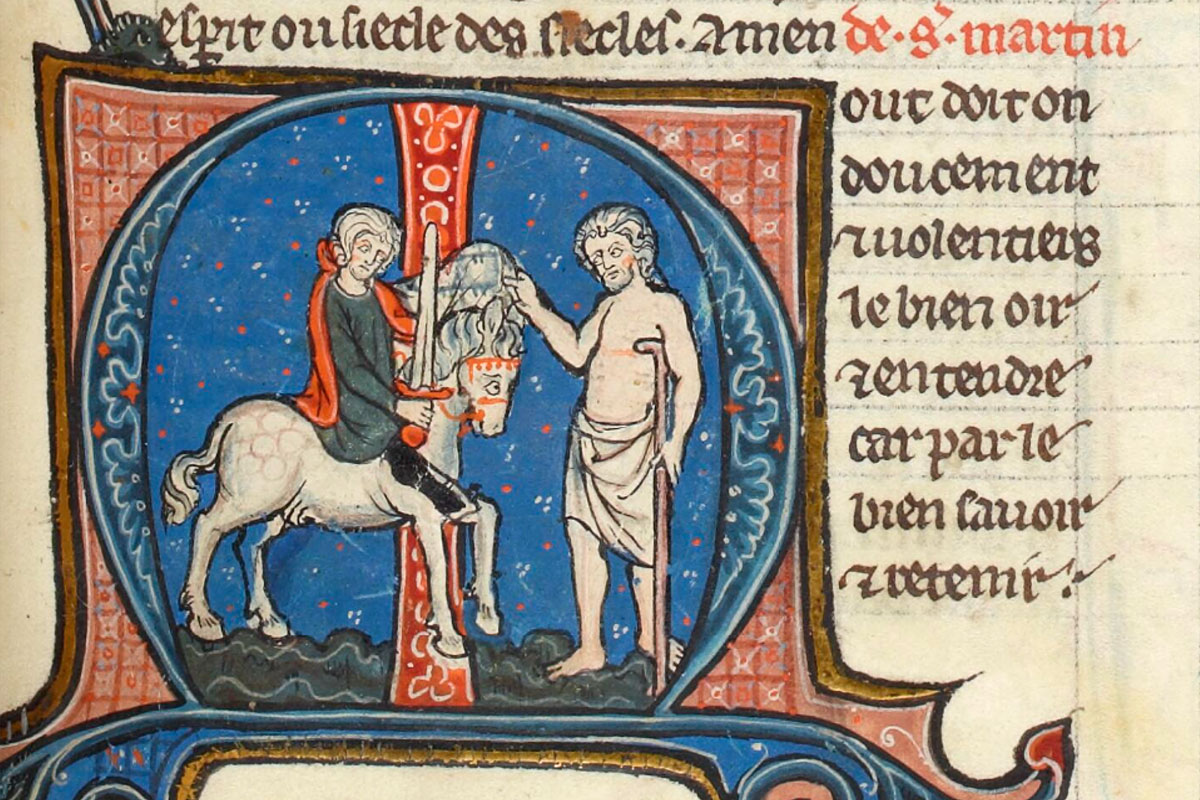 esprit ou siecle des siecles. Amen de. s. martin
Mout doit on
doucement
⁊ uolentiers
le bien oir
⁊ entendre
car par le
bien sauoir
⁊ retenir.